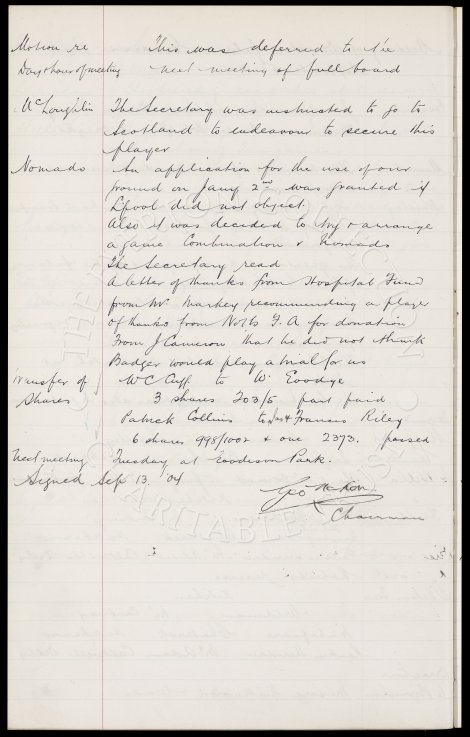 Motion re This was deferred to the
Days & hours of meeting next meeting of full board
McLoughlin The Secretary was instructed to go to
Scotland to endeavour to secure this
player
Nomads An application for the use of our
ground on Jany 2nd was granted if
L'pool did not object.
Also it was decided to try & arrange
a game Combination v Nomads
The Secretary read
A letter of thanks from Hospital Fund
from Mr Markey recommending a player
of thanks from Notts F.A for donation
From J Cameron that he did not think
Badger would play a trial for us
Transfer of W C Cuff to W. Goodye
Shares 3 shares 203/5 part paid
Patrick Collins to Jas & Francis Riley
6 shares 998/1002 & one 2373. passed
Next meeting Tuesday at Goodison Park.
Signed Sep 13. 04
Geo Mahon
Chairman